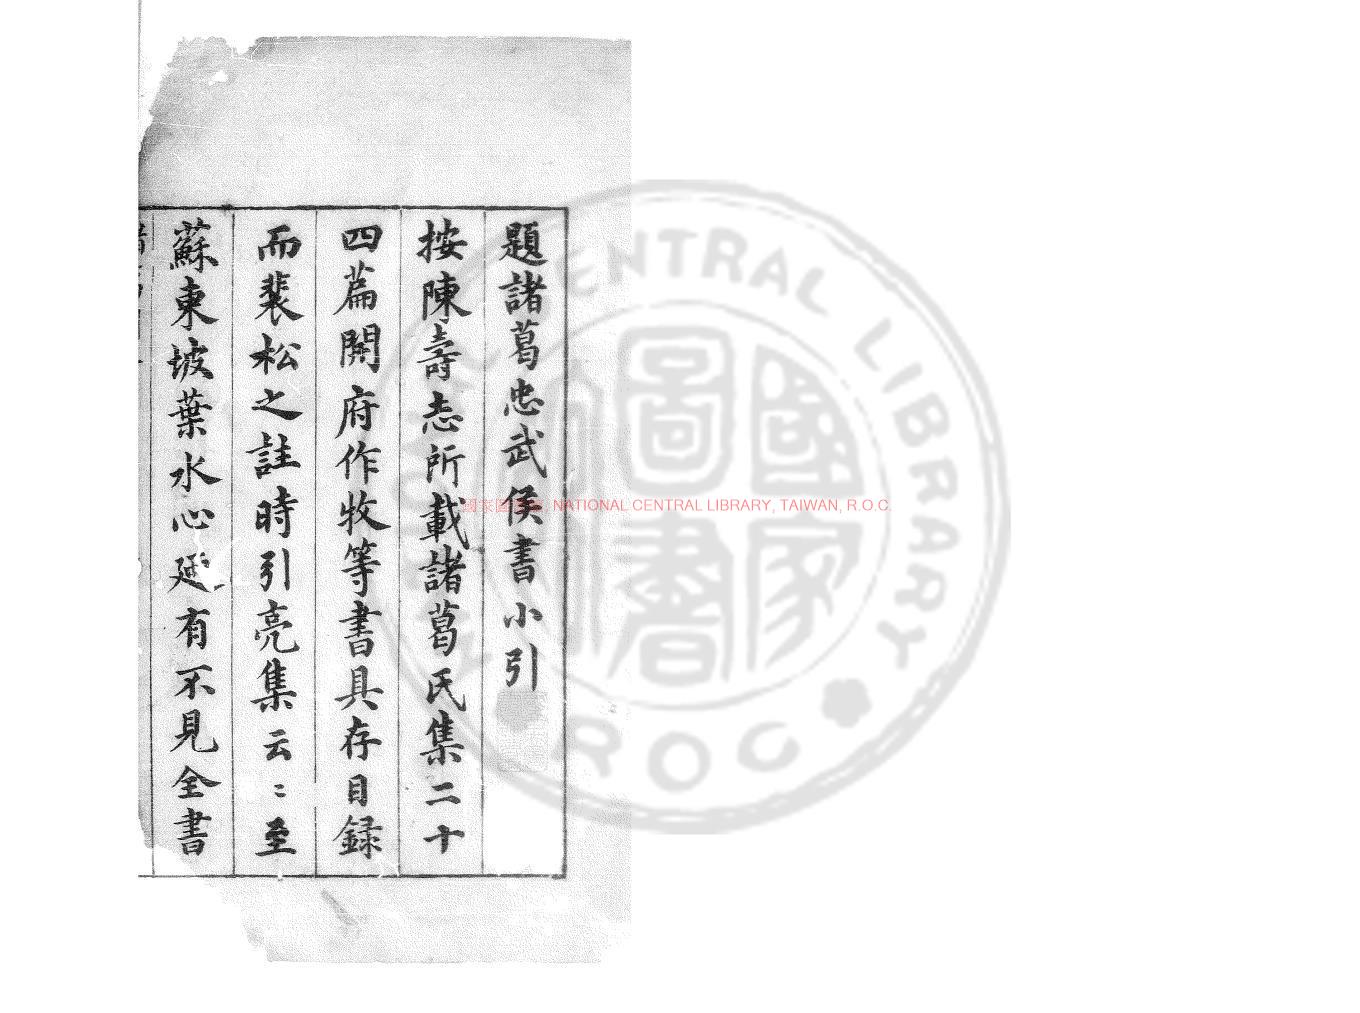 題諸葛忠武侯書小引
按陳壽志所載諸葛氏集二十
四篇開府作牧等書具存目録
而裴松之註時引亮集云〻至
蘇東坡葉水心延有不見全書
國家圖書館, NATIONAL CENTRAL LIBRARY, TAIWAN, R.O.C.
CENTRAL LIBRARY
ROC
國家圖書